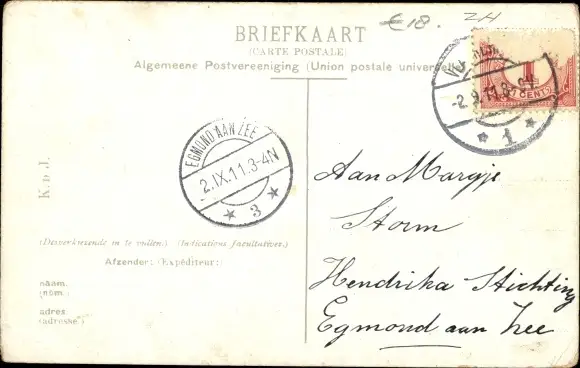 €18. ZH
BRIEFKAART
(CARTE POSTALE)
Algemeene Postvereeniging (Union postale univer
1
CENT
-2.9.11.3
1
EGMOND AAN ZEE
2.IX.11.3-4N
3
K. b. J.
Aan Margje
Storm
Hendrika Stichting
Egmond aan Zee
(Desverkiezende in te vullen.) (Indications facultatives.)
Afzender: (Expéditeur:)
naam.
(nom.)
adres
(adresse.)